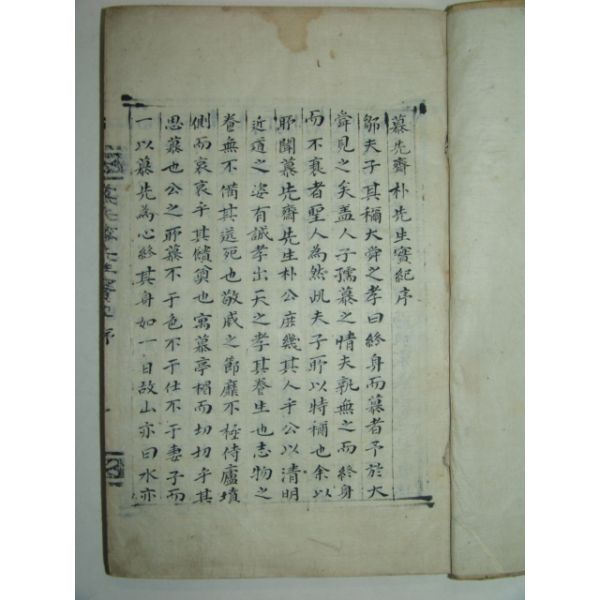 慕先齋朴先生實紀序
鄒夫子其稱大舜之孝曰終身而慕者予於大
舜見之矣盖人子孺慕之情夫孰無之而終身
而不衰者聖人為然此夫子所以特稱也余以
所聞慕先齋先生朴公庶幾其人乎公以清明
近道之姿有誠孝出天之孝其養生也志物之
養無不備其送死也敬戚之節靡不極侍廬墳
側而哀哀乎其饋奠也寓慕亭楣而切切乎其
思慕也公之所慕不于色不于仕不于妻子而
一以慕先為心終其身如一日故山亦曰水亦
慕先齋先生實紀 序